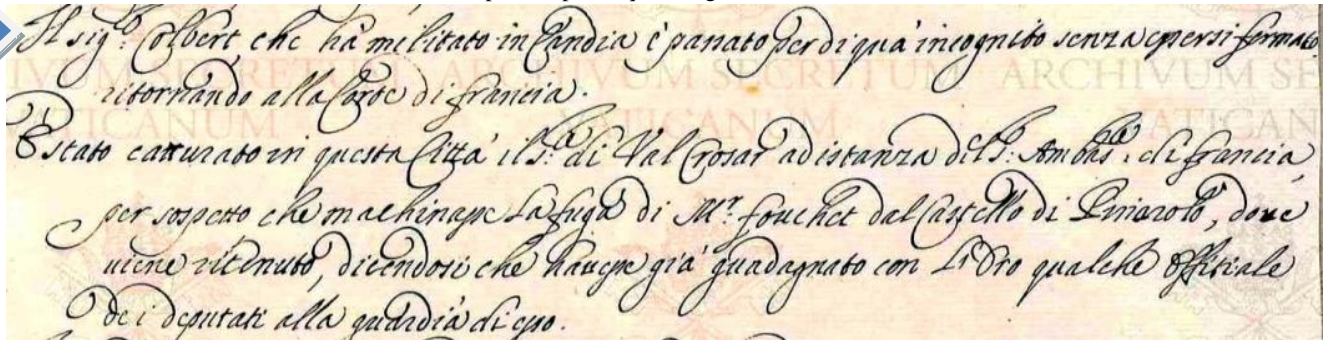 Il sig.re Colbert che hà militato in Candia è passato per di quà incognito senza essersi fermato
ritornando alla Corte di francia.
È stato catturato in questa Città il S.r di Val Crosar ad istanza del S.r Ambas.re di francia,
per sospetto che machinasse la fuga di M.r fouchet dal Castello di Pinarolo, dove
viene ritenuto, dicendosi che havesse già guadagnato con qualche Offitiale
de i deputati alla guardia di esso.
ARCHIVUM SECRETUM ARCHIVUM SECRETUM ARCHIVUM SE
VATICANUM VATICANUM VATICAN